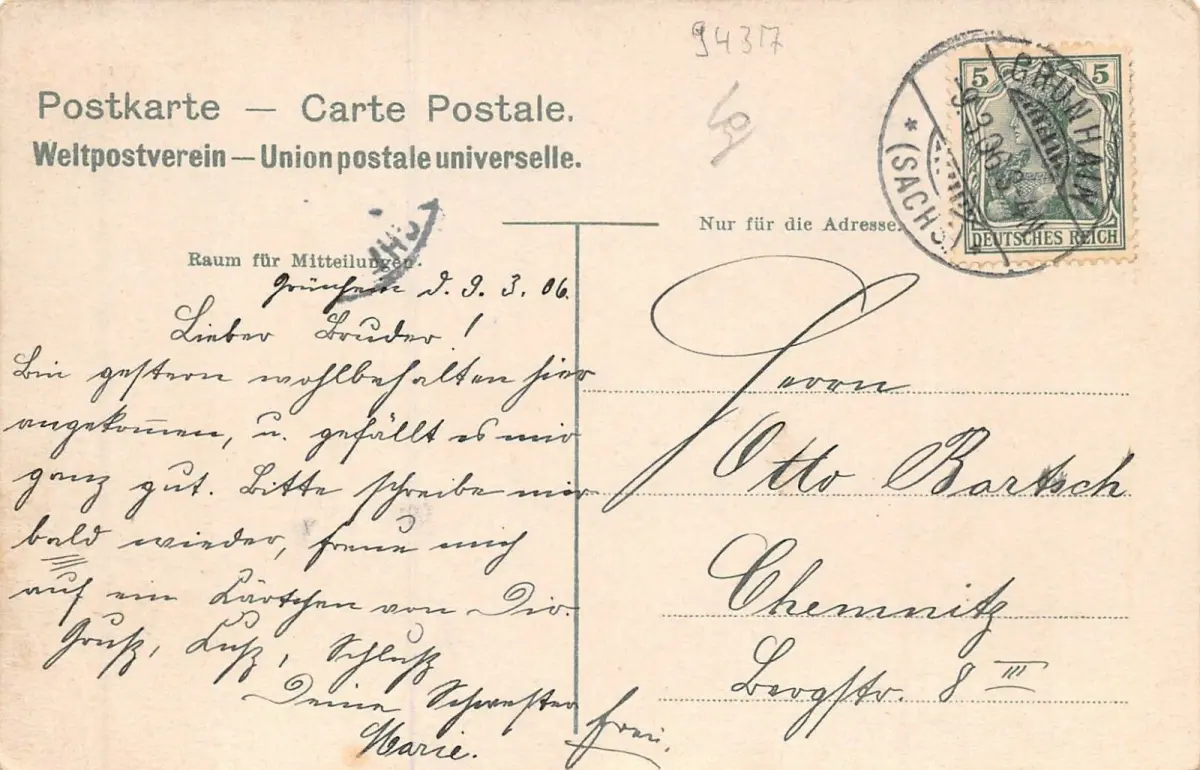 94317
50
Postkarte — Carte Postale.
Weltpostverein — Union postale universelle.
5 5
DEUTSCHES REICH
GRÜNHAIN
9.3.06.3-4N
* (SACHS.) *
Nur für die Adresse.
Raum für Mitteilungen.
Grünhain d. 9. 3. 06.
Lieber Bruder!
Bin gestern wohlbehalten hier
angekom̅en, u. gefällt es mir
ganz gut. Bitte schreibe mir
bald wieder, freue mich
auf ein Kärtchen von Dir.
Gruß, Kuß, Schluß
Deine Schwester
Marie.
frei.
Herrn
Otto Bartsch
Chemnitz
Bergstr. 8 III